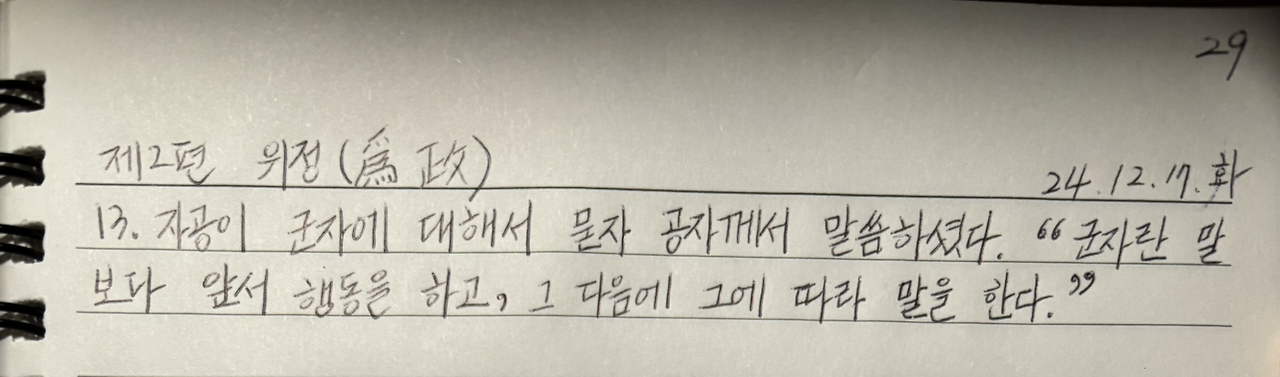 29
제2편 위정(爲政)
24.12.17.화
13. 자공이 군자에 대해서 묻자 공자께서 말씀하셨다. “군자란 말
보다 앞서 행동을 하고, 그 다음에 그에 따라 말을 한다.”